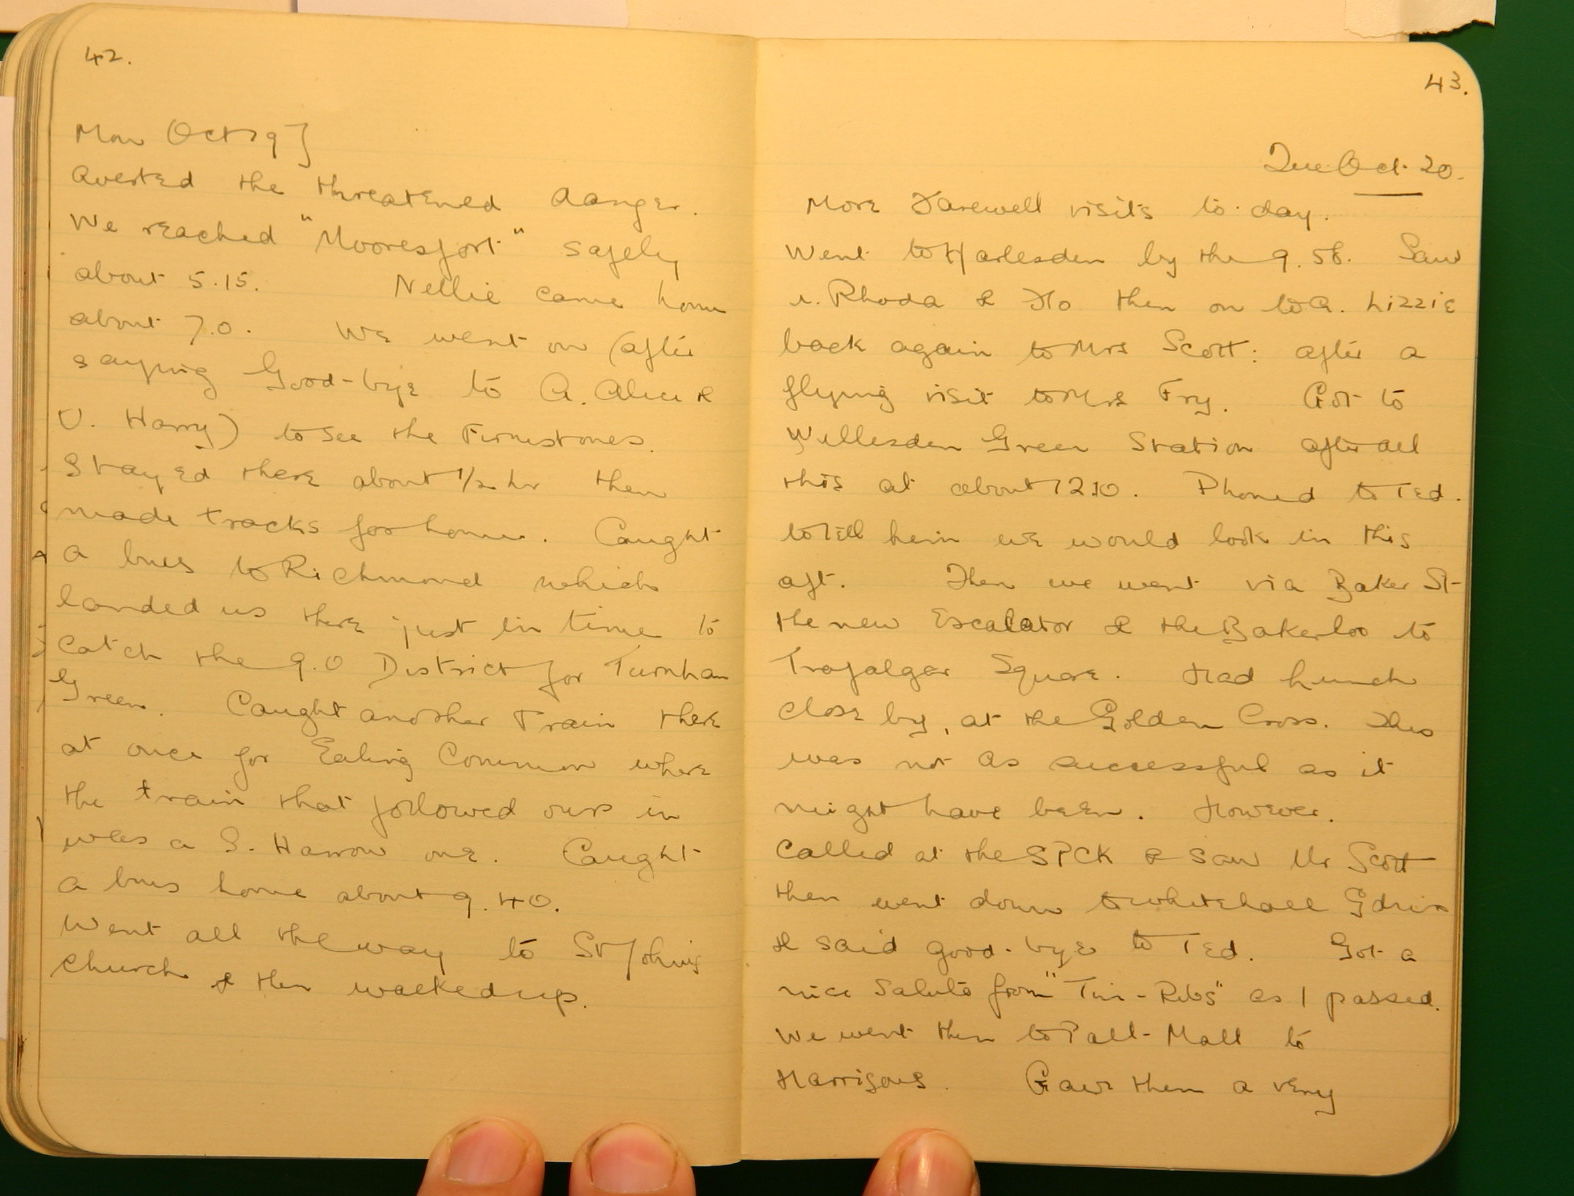 42.
Mon Oct 19]
averted the threatened danger.
We reached "Mooresfort" safely
about 5.15. Nellie came home
about 7.0. We went on (after
saying Good-bye to A. Alice &
U. Harry) to see the Firmstones.
Stayed there about 1/2 hr then
made tracks for home. Caught
a bus to Richmond which
landed us there just in time to
catch the 9.0 District for Turnham
Green. Caught another Train there
at once for Ealing Common where
the train that followed ours in
was a S. Harrow one. Caught
a bus home about 9.40.
Went all the way to St Johns
church & then walked up.
43.
Tue Oct. 20.
More Farewell visits to-day.
Went to Harlesden by the 9.58. Saw
Rhoda & Flo then on to A. Lizzie
back again to Mrs Scott: after a
flying visit to Mrs Fry. Got to
Willesden Green Station after all
this at about 12.10. Phoned to Ted.
to tell him we would look in this
aft. Then we went via Baker St
the new Escalator & the Bakerloo to
Trafalgar Square. Had lunch
close by, at the Golden Cross. This
was not as successful as it
might have been. However.
Called at the SPCK & saw Mr Scott
then went down to Whitehall Gdns
& said good-bye to Ted. Got a
nice Salute from "Tin-Ribs" as I passed.
We went then to Pall-Mall to
Harrisons. Gave them a very